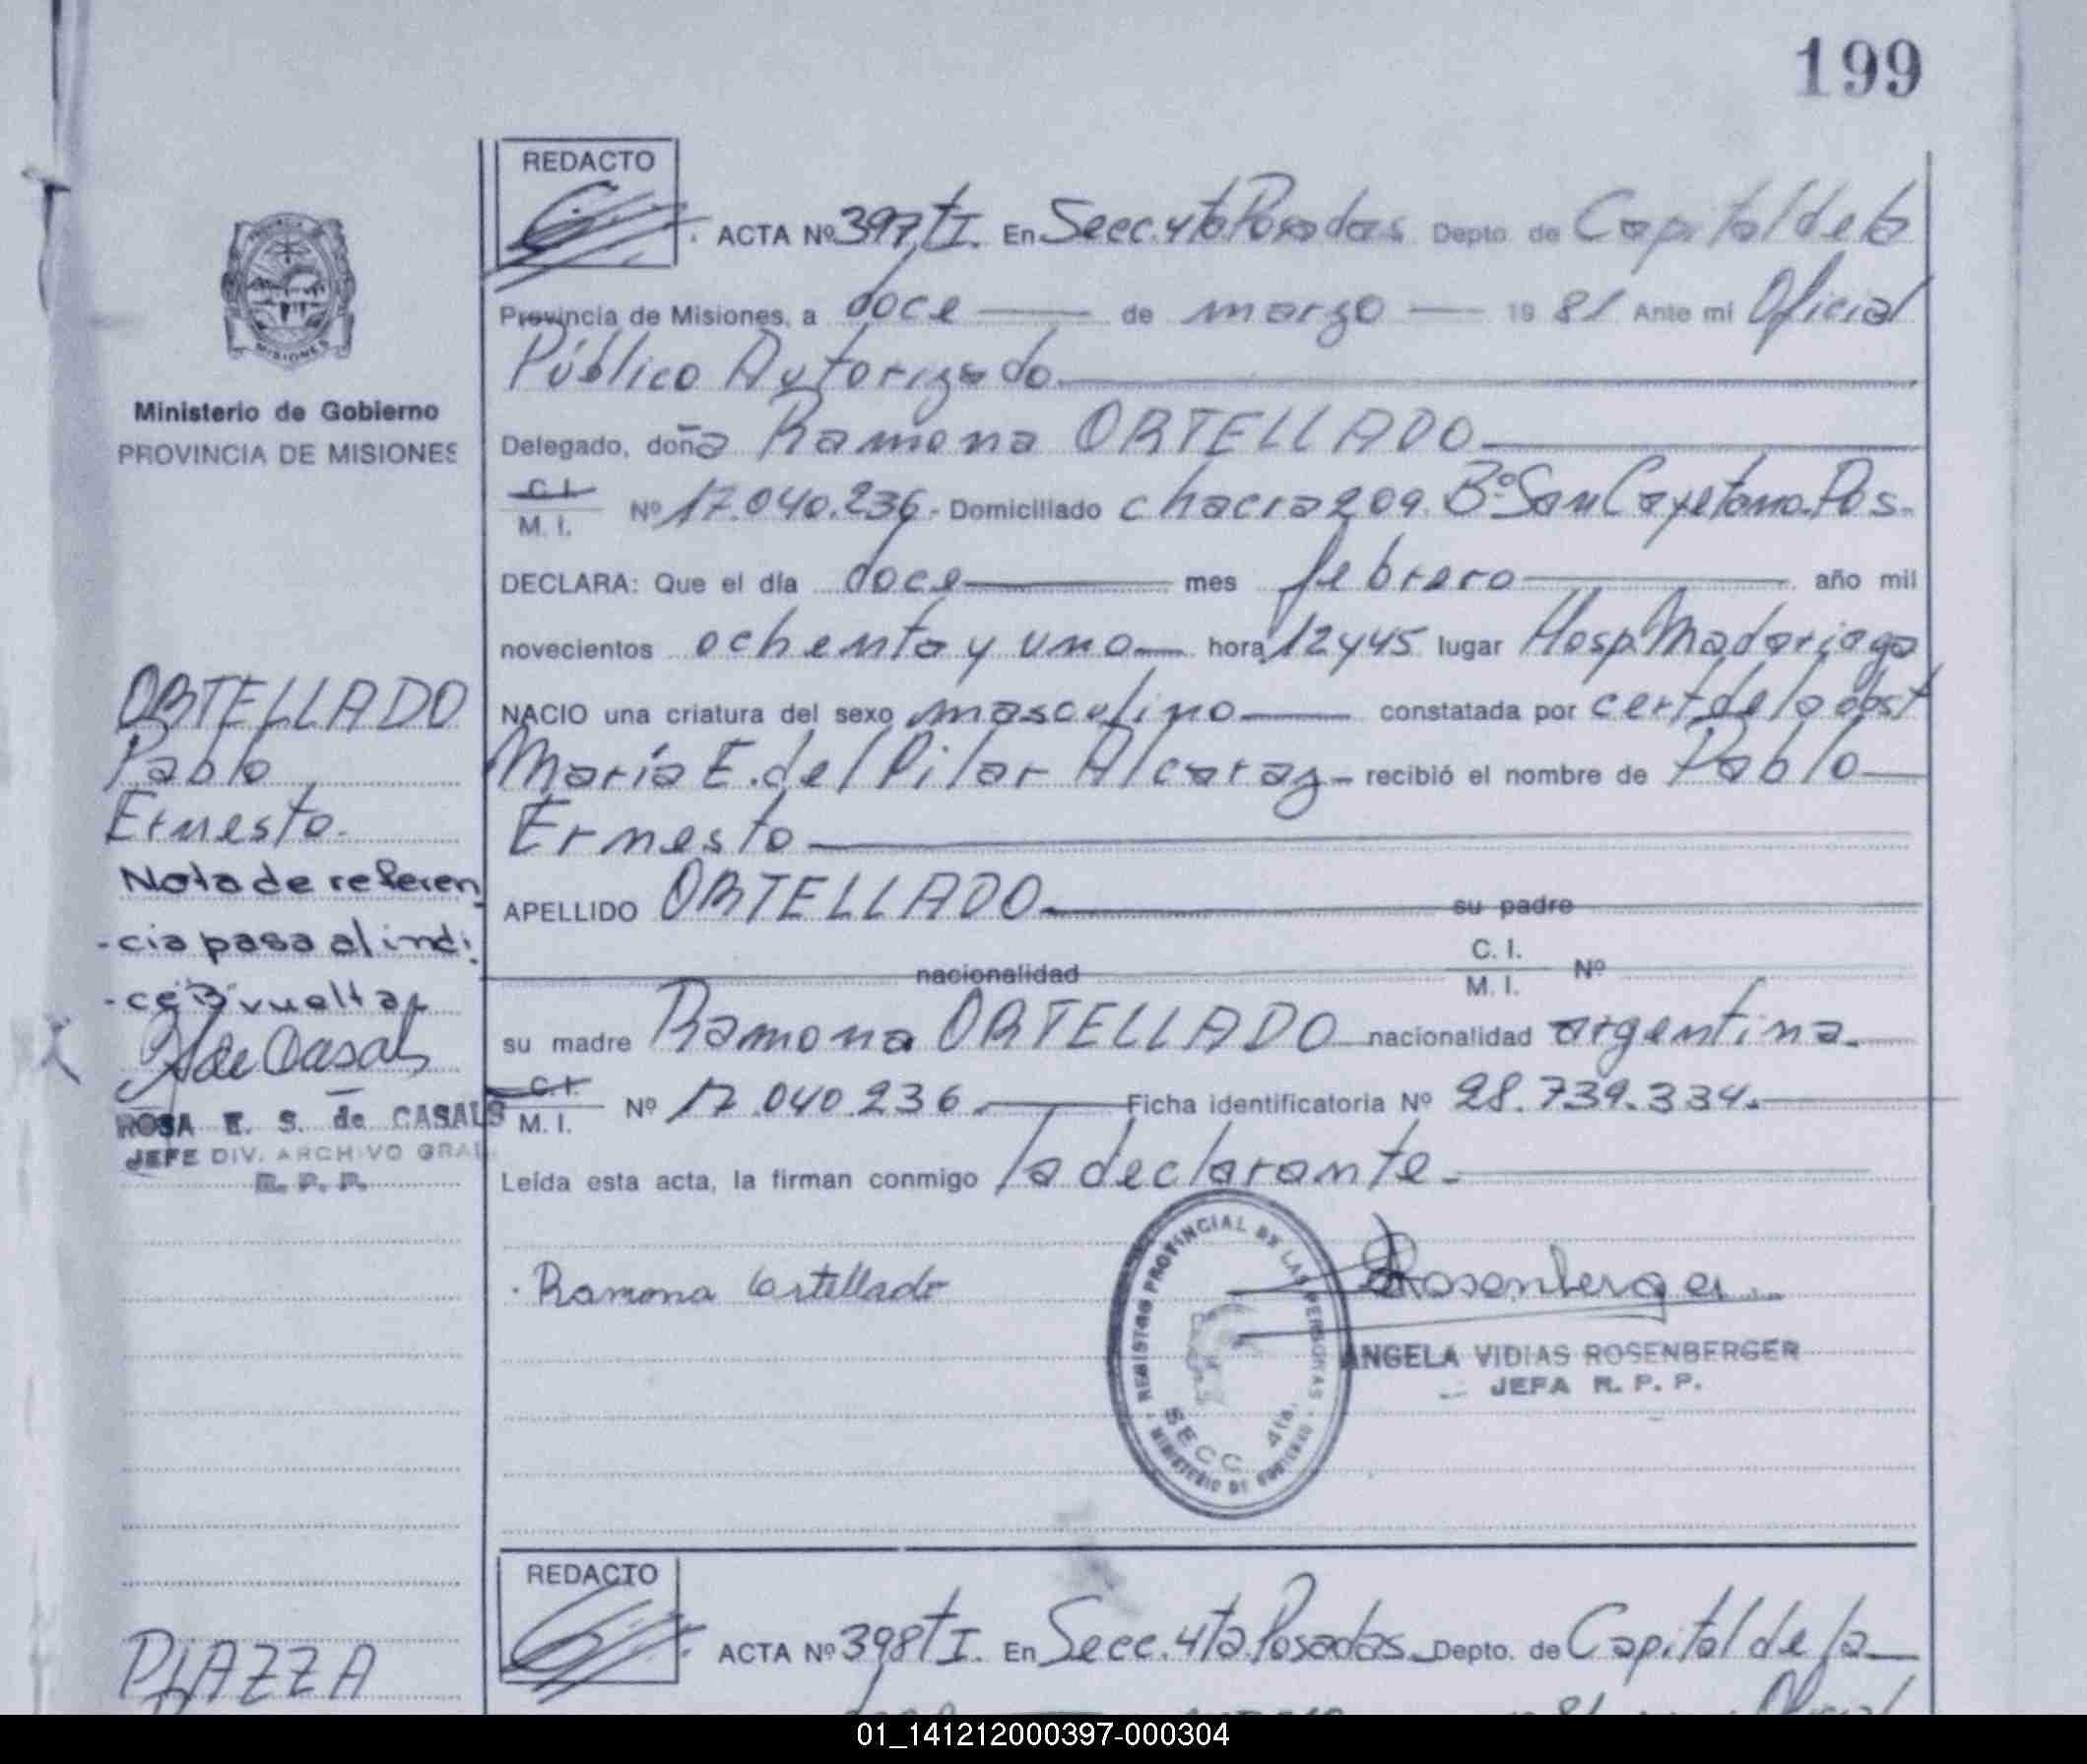 199
REDACTO
ACTA Nº 397 tI. En Secc. 4ta Posadas Depto. de Capital de la
Provincia de Misiones, a doce — de marzo — 19 81 Ante mi Oficial
Público Autorizado
Delegado, doña Ramona ORTELLADO
C. I.
M. I. Nº 17.040.236.- Domiciliado chacra 209. Bº San Cayetano. Pos.
DECLARA: Que el día doce mes febrero año mil
novecientos ochenta y uno hora 12 y 45 lugar Hosp. Madariaga
NACIO una criatura del sexo masculino constatada por cert de la obst
María E. del Pilar Alcaraz - recibió el nombre de Pablo
Ernesto
APELLIDO ORTELLADO su padre
nacionalidad C. I. M. I. Nº
su madre Ramona ORTELLADO nacionalidad argentina.
C. I.
M. I. Nº 17.040.236. Ficha identificatoria Nº 28.739.334.
Leída esta acta, la firman conmigo la declarante.
Ramona Ortellado
Rosenberger
ANGELA VIDIAS ROSENBERGER
JEFA R. P. P.
REGISTRO PROVINCIAL DE LAS PERSONAS
SECC. 4ta.
MINISTERIO DE GOBIERNO
MISIONES
Ministerio de Gobierno
PROVINCIA DE MISIONES
ORTELLADO
Pablo
Ernesto.
Nota de referen
-cia pasa al indi
-ce 3 vueltas
de Casals
ROSA E. S. de CASALS
JEFE DIV. ARCHIVO GRAL.
R. P. P.
REDACTO
ACTA Nº 398 tI. En Secc. 4ta. Posadas Depto. de Capital de la
81 Oficial
PIAZZA
01_141212000397-000304